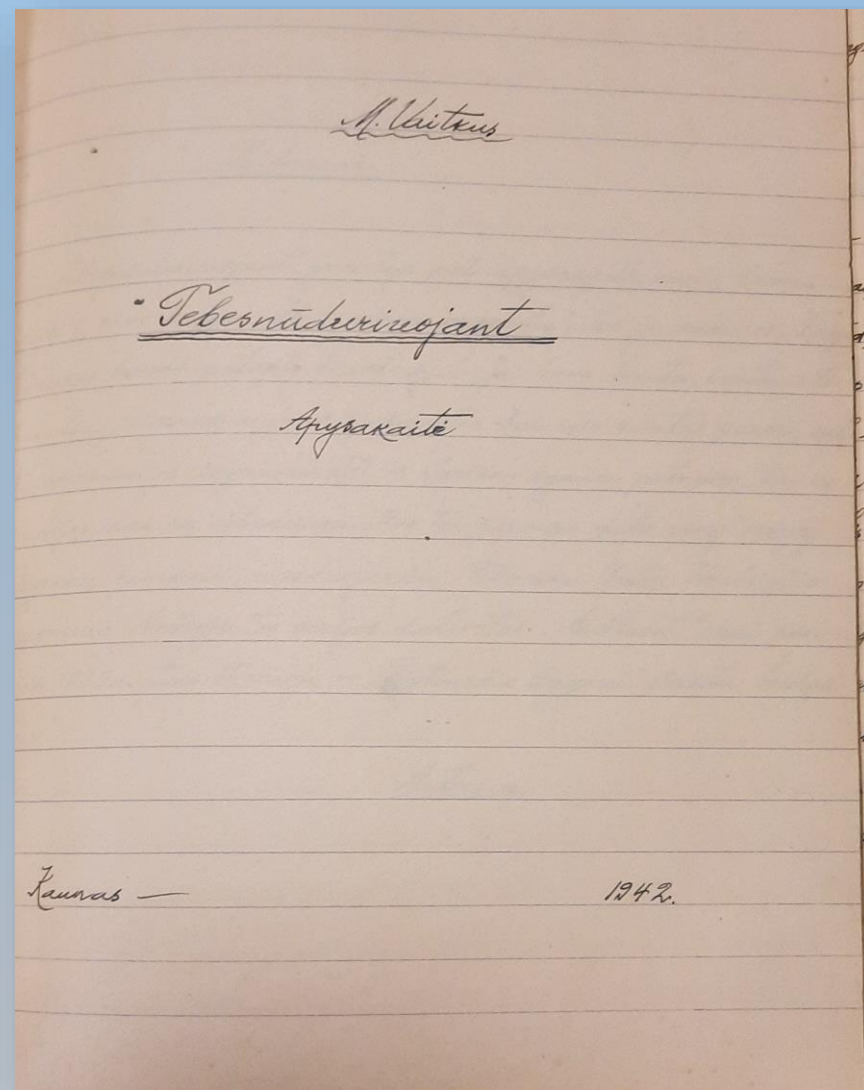 M. Vaitkus
Tebesnūduriuojant
Apysakaitė
Kaunas — 1942.